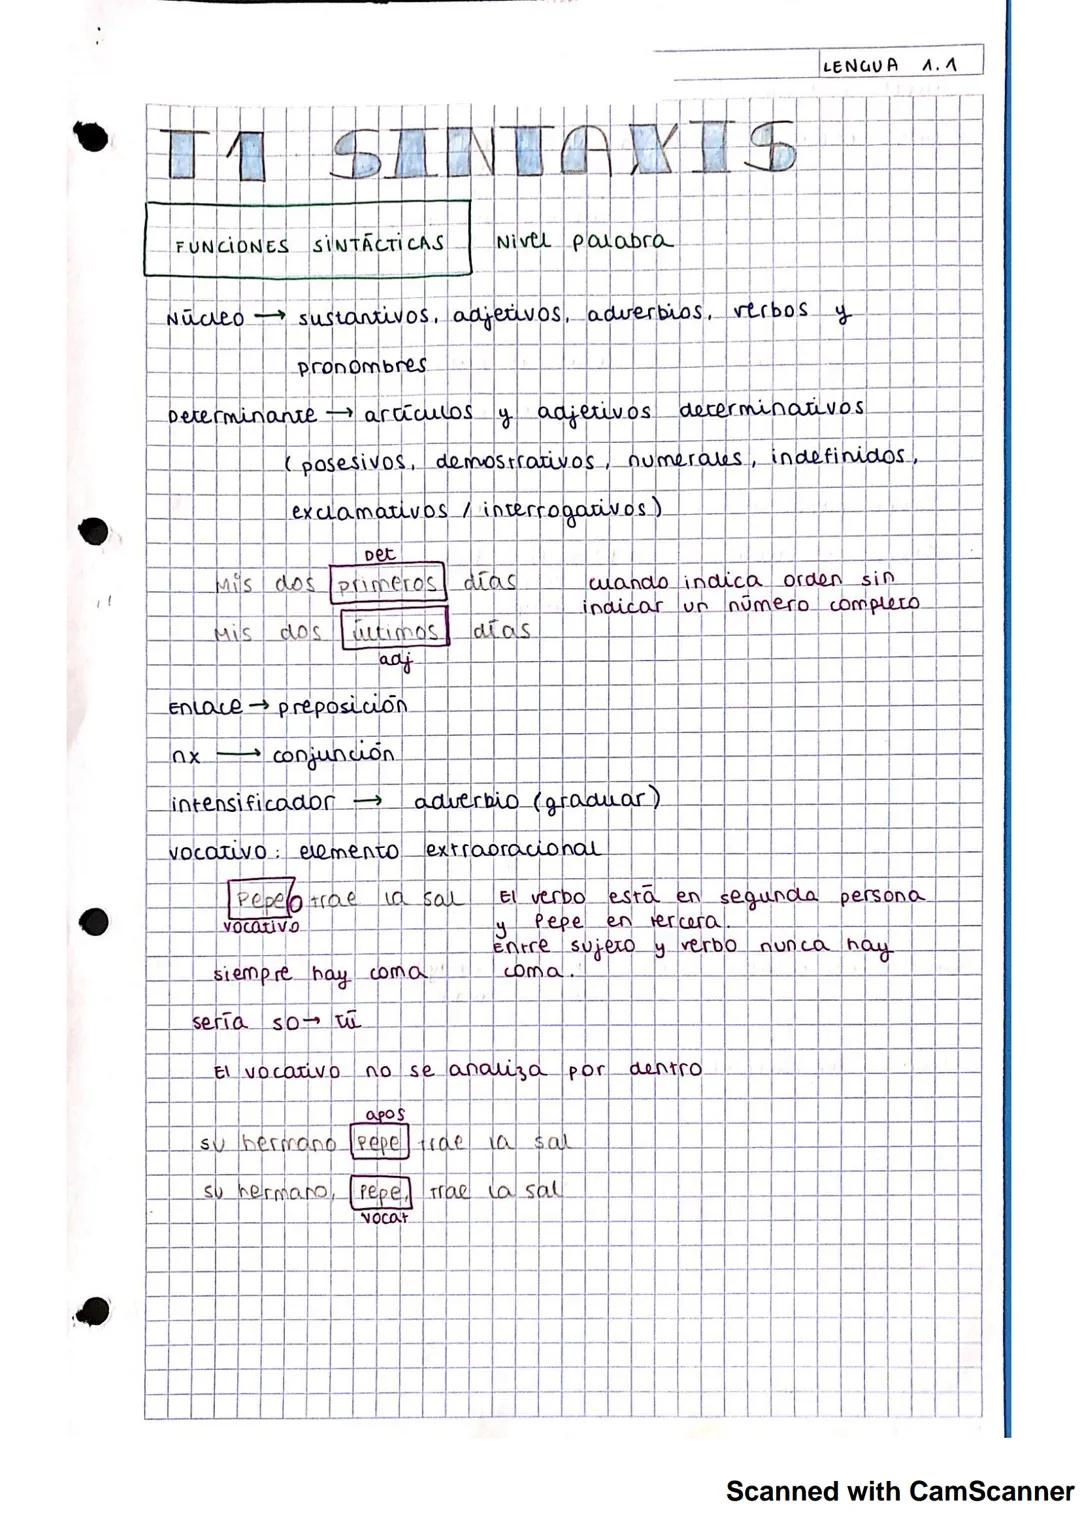 LENGUA 1.1
T1 SINTAXIS
FUNCIONES SINTÁCTICAS Nivel palabra
Núcleo → sustantivos, adjetivos, adverbios, verbos y
pronombres
Determinante → artículos y adjetivos determinativos
(posesivos, demostrativos, numerales, indefinidos,
exclamativos / interrogativos)
Det
Mis dos primeros días cuando indica orden sin
indicar un número completo
Mis dos últimos días
adj
Enlace → preposición
nx → conjunción
intensificador → adverbio (graduar)
vocativo: elemento extraoracional
Pepe, trae la sal El verbo está en segunda persona
vocativo y Pepe en tercera.
Entre sujeto y verbo nunca hay
siempre hay coma coma.
sería so → tú
El vocativo no se analiza por dentro
apos
su hermano Pepe trae la sal
su hermano, Pepe, trae la sal
vocat
Scanned with CamScanner